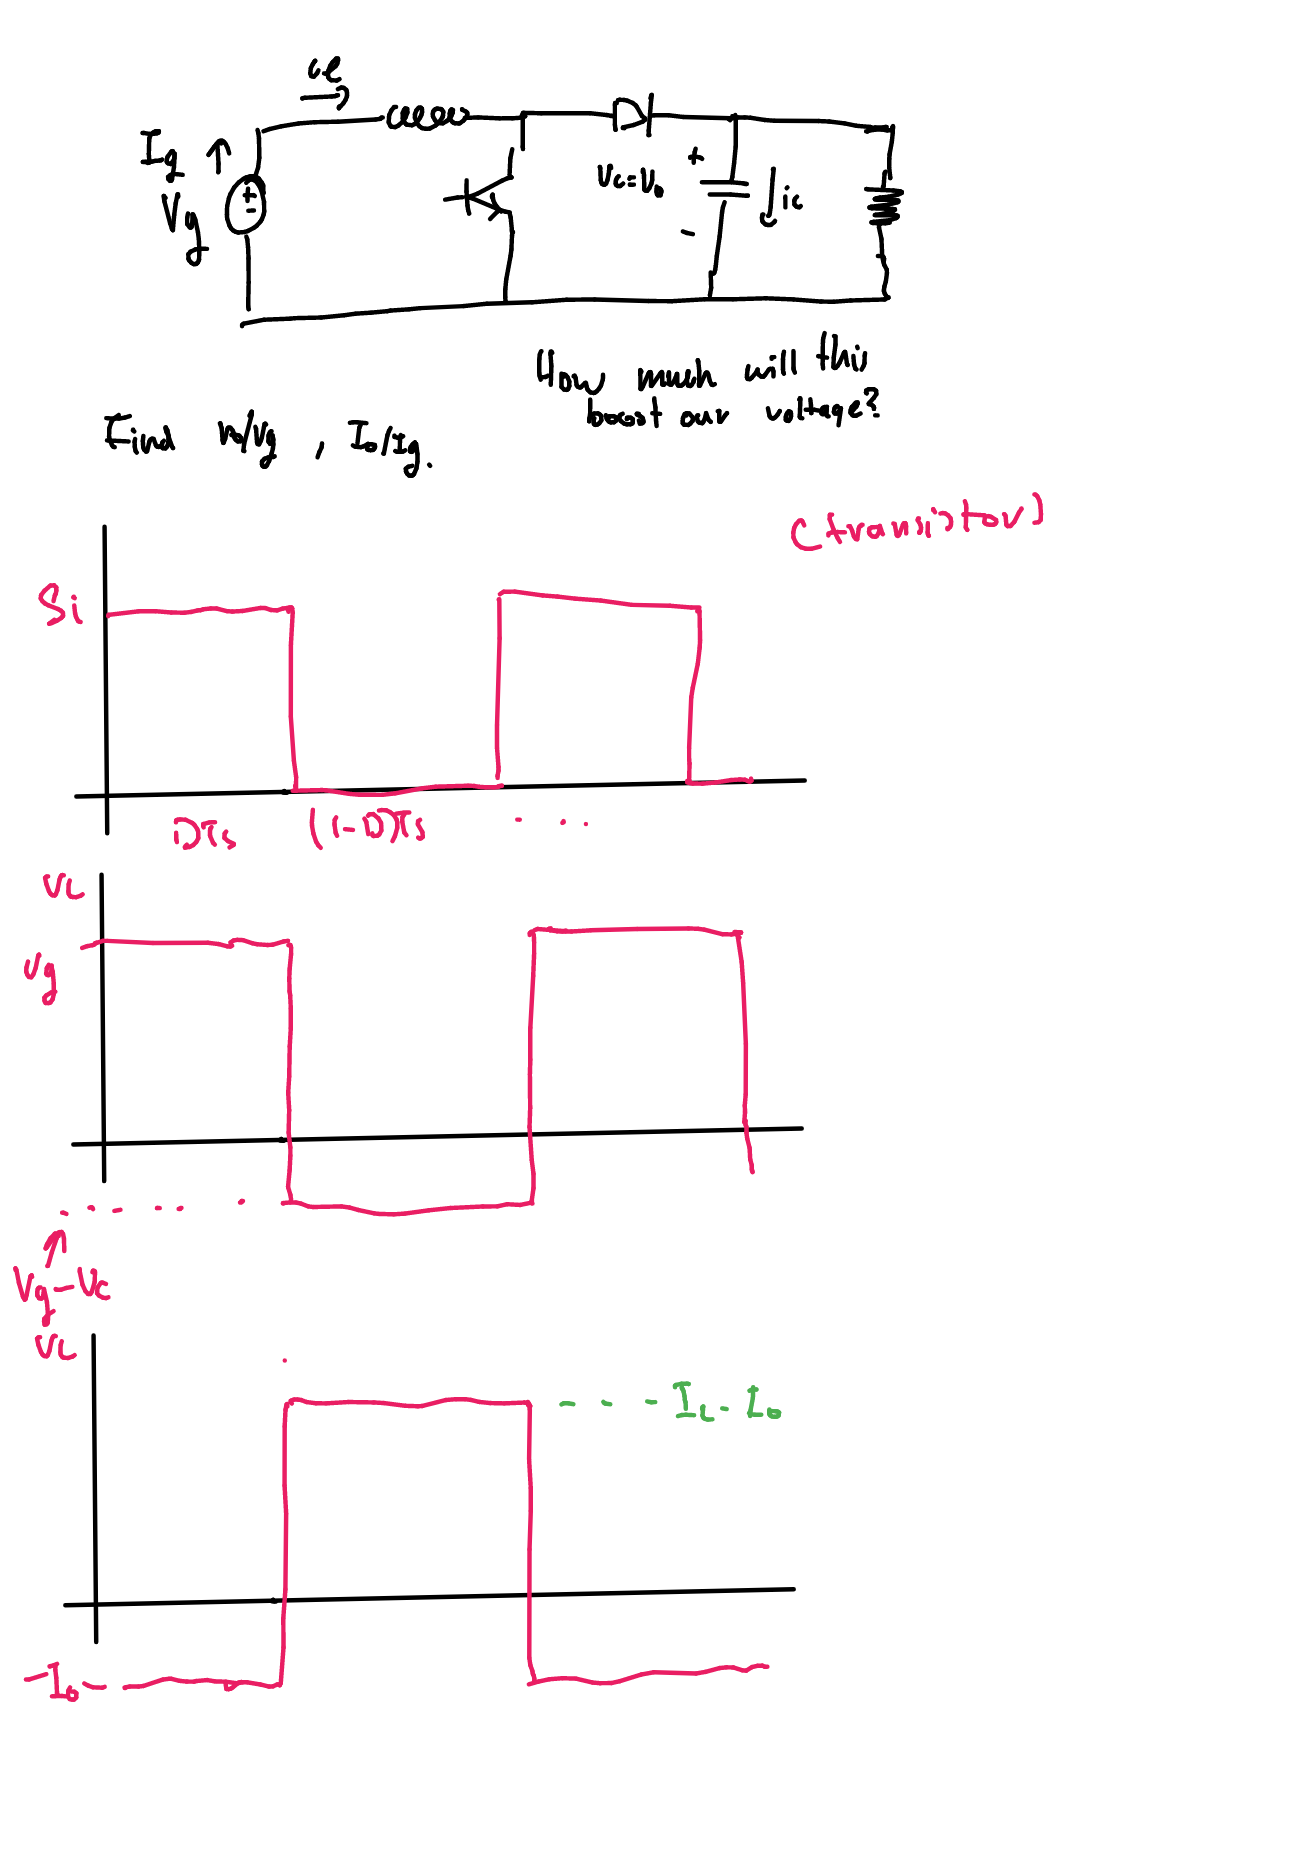 il
Ig
Vg
+
-
Vc=Vo
+
-
ic
How much will this
boost our voltage?
Find Vo/Vg , Io/Ig.
(transistor)
Si
DTs (1-D)Ts . . .
VL
Vg
Vg-Vc
VL
IL-Io
-Io